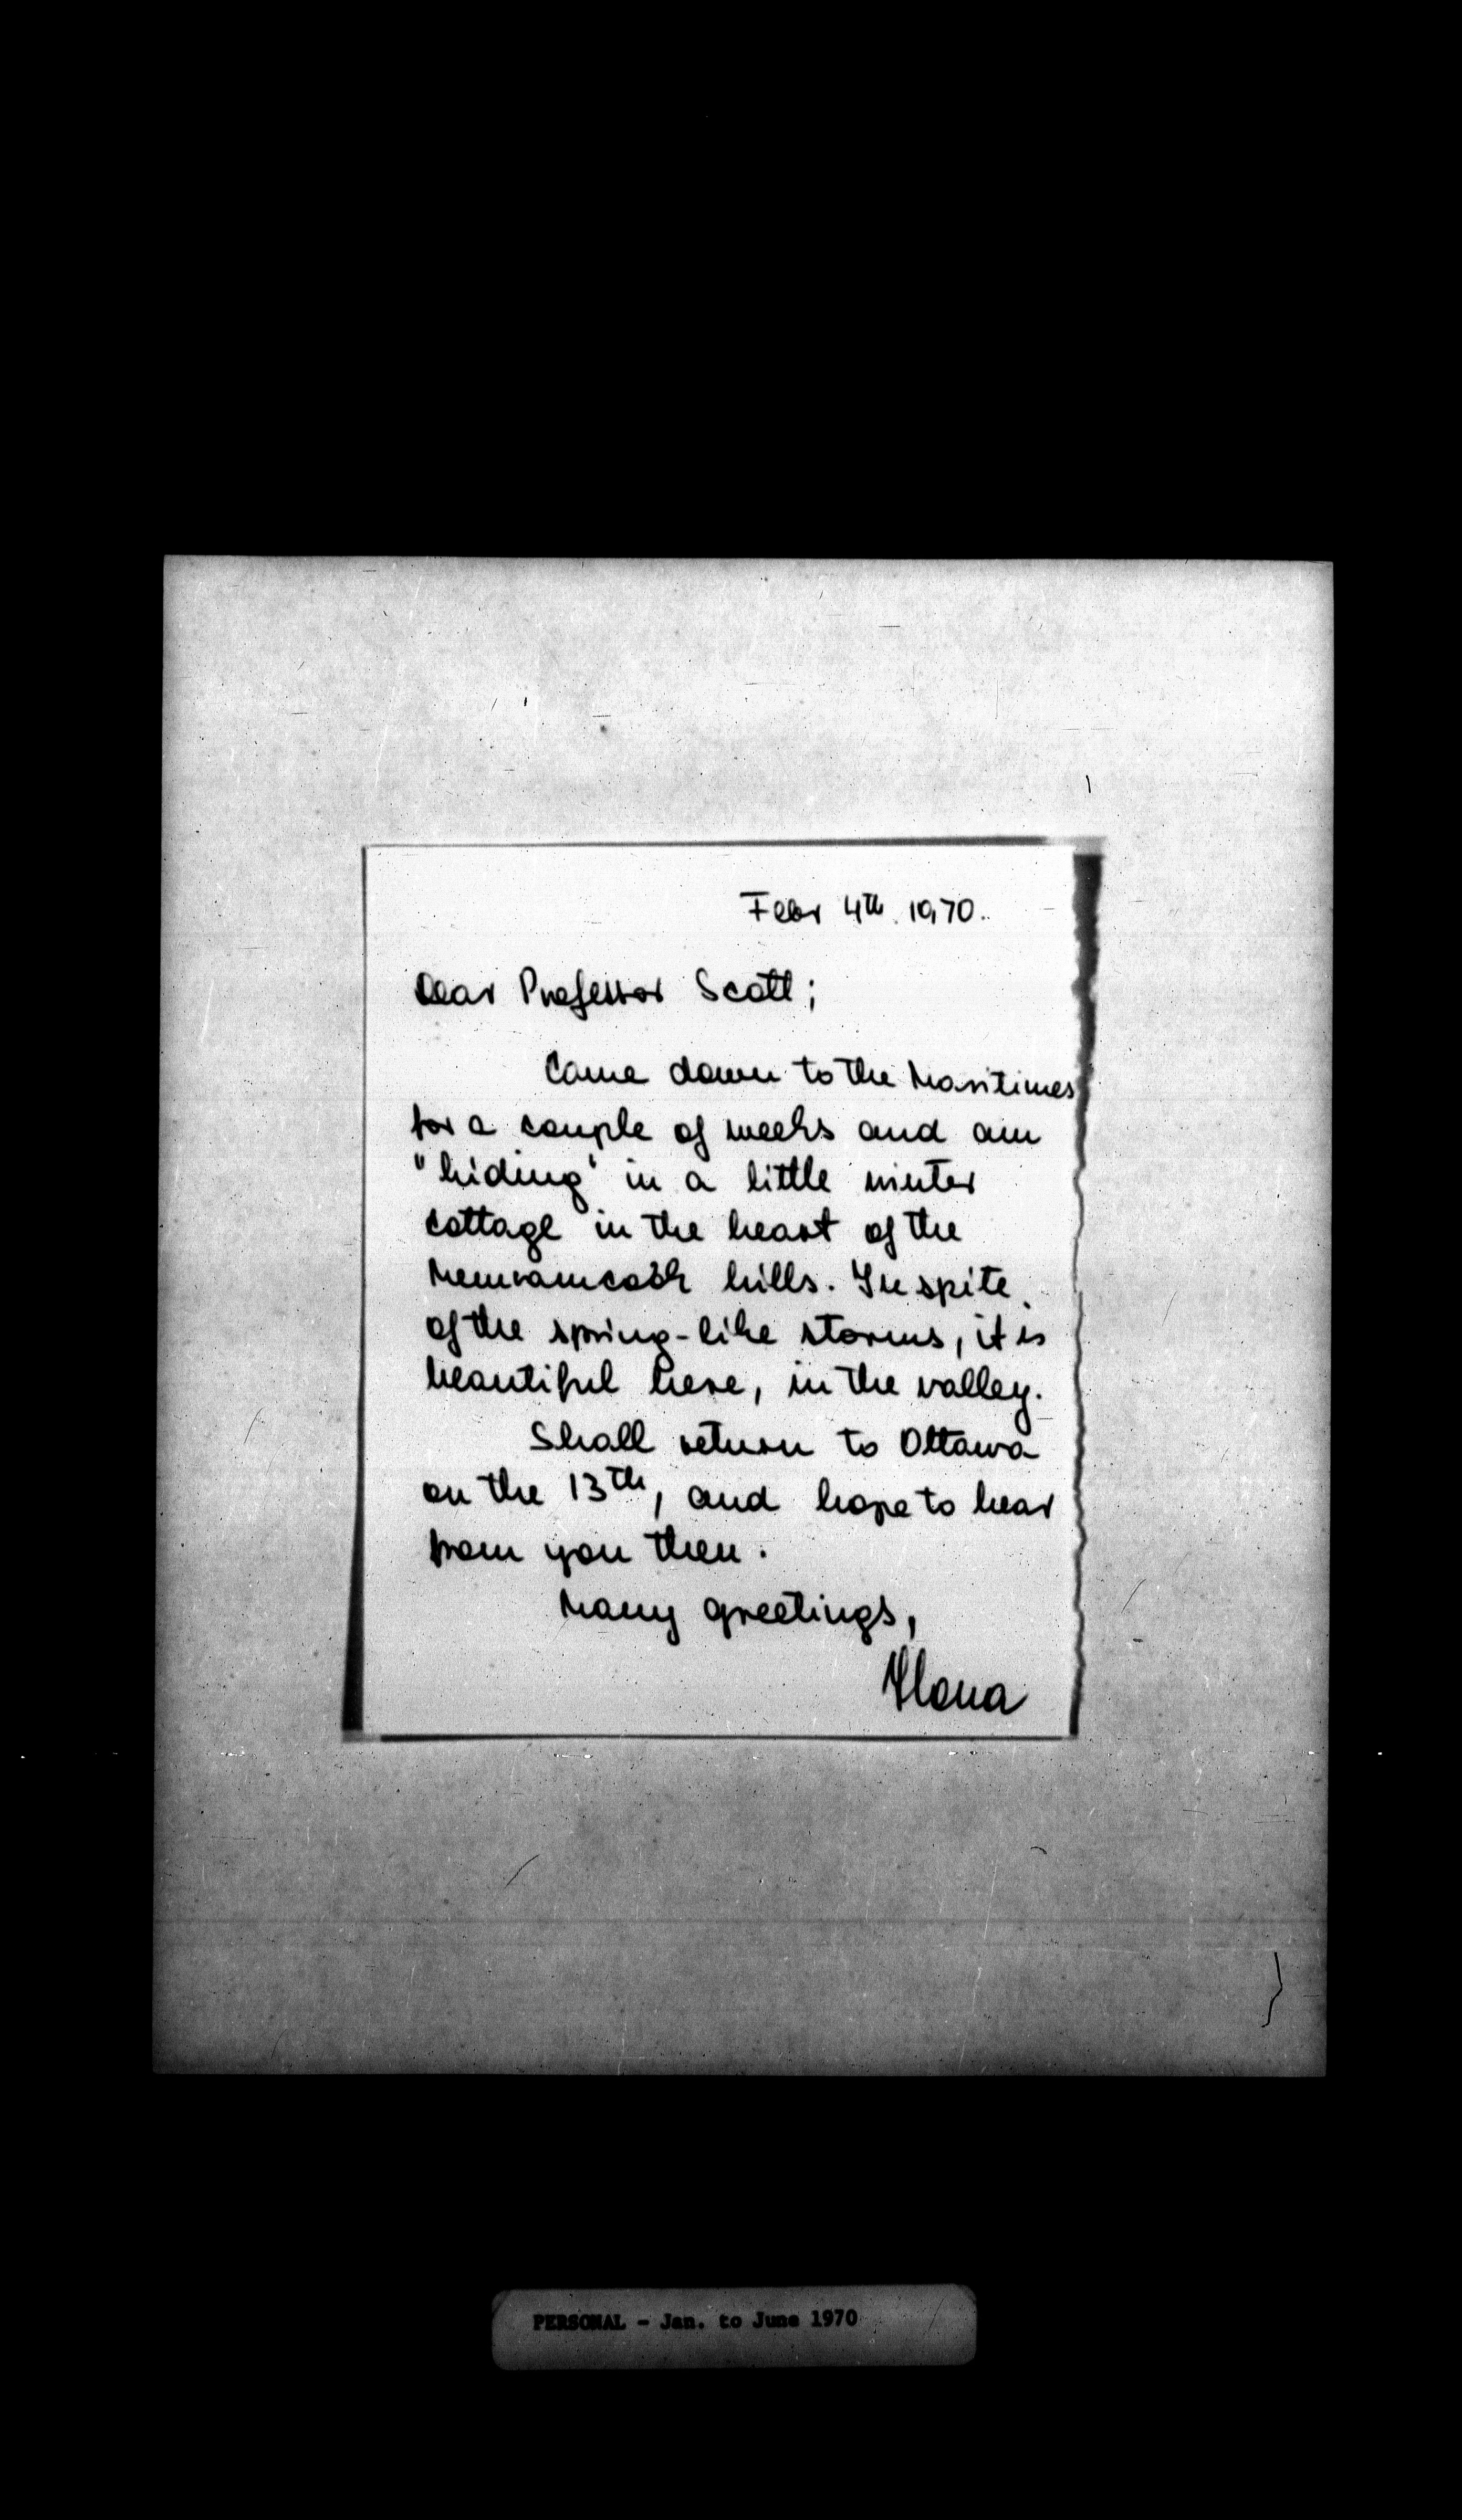 Febr 4th 1970.
Dear Professor Scott;
Came down to the Maritimes
for a couple of weeks and am
"hiding" in a little winter
cottage in the heart of the
Memramcook hills. In spite
of the spring-like storms, it is
beautiful here, in the valley.
Shall return to Ottawa
on the 13th, and hope to hear
from you then.
Many greetings,
Ilona
PERSONAL - Jan. to June 1970